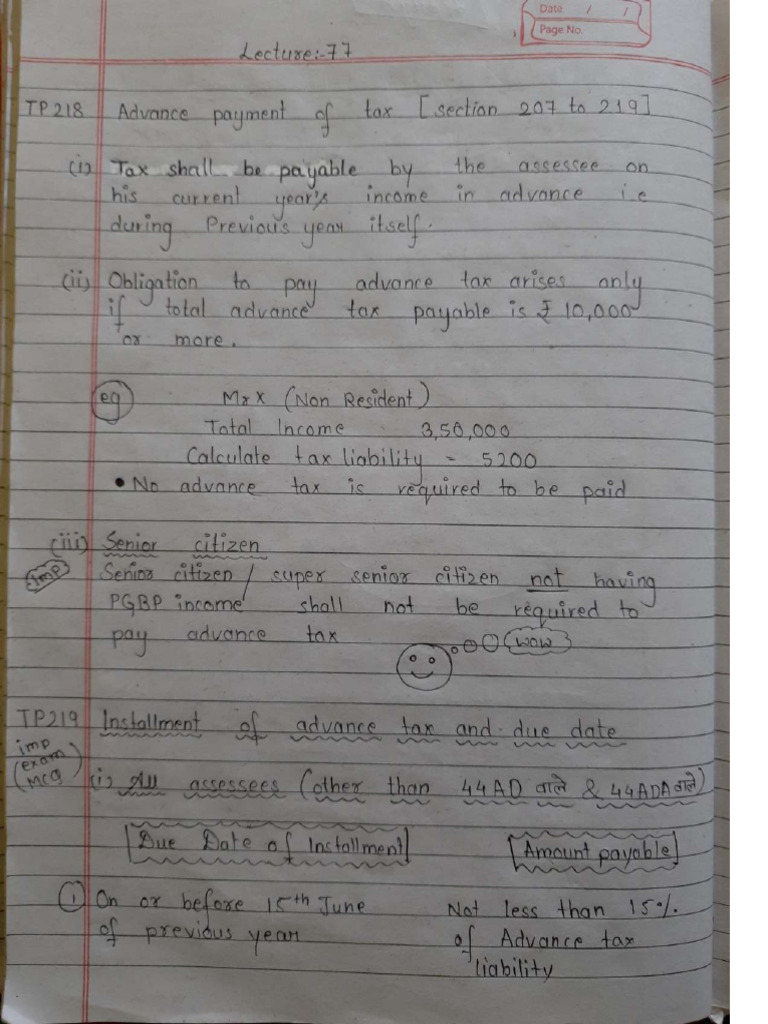 Date / /
Page No.
Lecture:-77
TP218 Advance payment of tax [section 207 to 219]
(i) Tax shall be payable by the assessee on
his current year's income in advance i.e
during Previous year itself.
(ii) Obligation to pay advance tax arises only
if total advance tax payable is ₹ 10,000
or more.
eg Mr X (Non Resident)
Total Income 3,50,000
Calculate tax liability = 5200
• No advance tax is required to be paid
(iii) Senior citizen
imp Senior citizen / super senior citizen not having
PGBP income shall not be required to
pay advance tax
wow
TP219 Installment of advance tax and due date
imp
(exam
MCQ)
(i) All assessees (other than 44AD वाले & 44ADA वाले)
[Due Date of Installment] [Amount payable]
① On or before 15th June Not less than 15%.
of previous year of Advance tax
liability